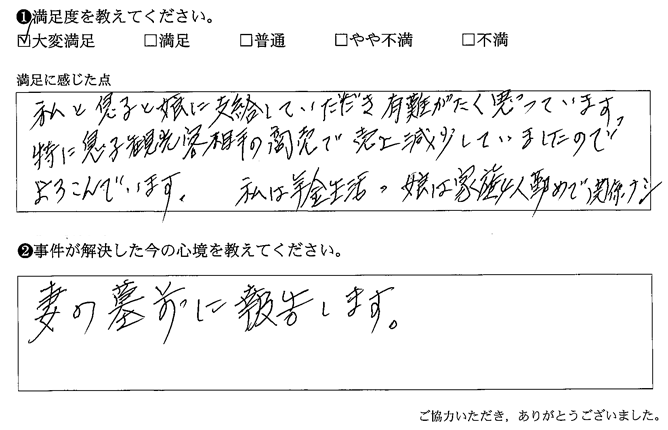 ❶満足度を教えてください。
☑大変満足 □満足 □普通 □やや不満 □不満
満足に感じた点
私と息子と娘に支給していただき有難がたく思っています。
特に息子観光客相手の商売で売上減少していましたので
よろこんでいます。 私は年金生活。娘は家族4人勤めで関係ナシ
❷事件が解決した今の心境を教えてください。
妻の墓前に報告します。
ご協力いただき，ありがとうございました。